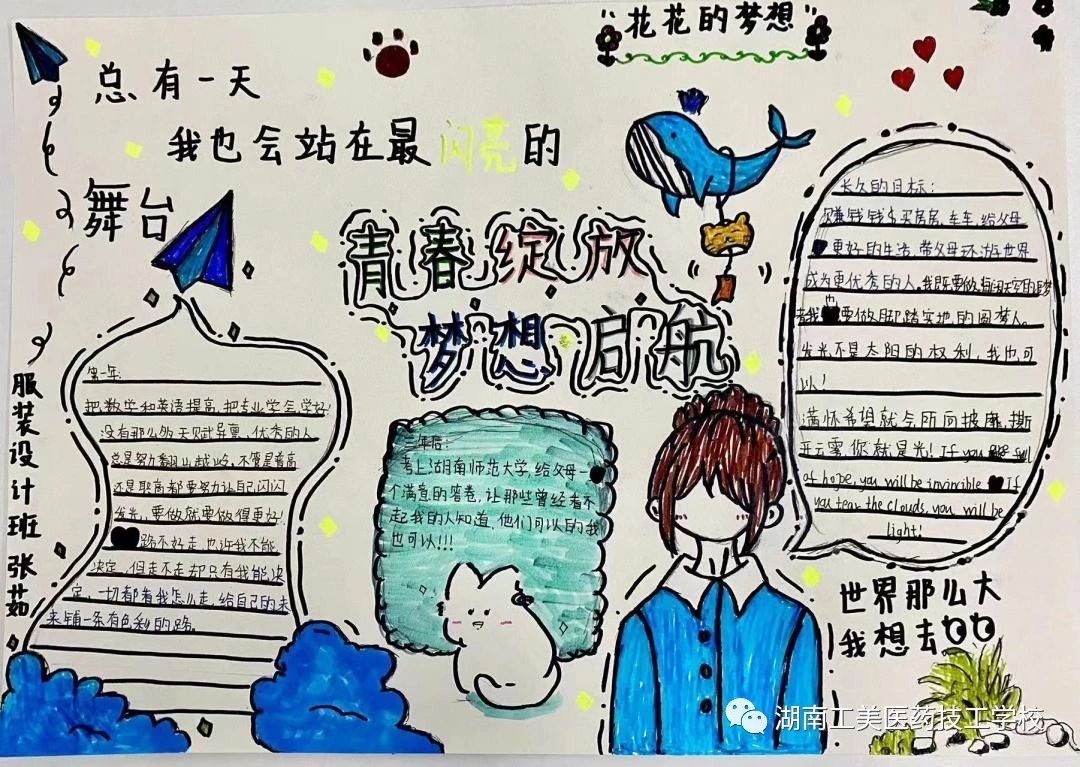 "花花的梦想"
总有一天
我也会站在最闪亮的
舞台
青春绽放
梦想启航
服装设计班 张茹
第一年:
把数学和英语提高,把专业学会,学好!
没有那么多天赋异禀,优秀的人
总是努力翻山越岭,不管是普高
还是职高都要努力让自己闪闪
发光,要做就要做得更好!
路不好走,也许我不能
决定,但走不走却只有我能决
定,一切都看我怎么走,给自己的未
来铺一条有色彩的路。
三年后:
考上湖南师范大学,给父母一
个满意的答卷,让那些曾经看不
起我的人知道,他们可以的我
也可以!!!
长久的目标:
赚钱钱$买房房,车车,给父母
更好的生活,带父母环游世界
成为更优秀的人。我既要做
我要做脚踏实地的圆梦人。
发光不是太阳的权利,我也可
以!
满怀希望就会所向披靡,撕
开云雾,你就是光!If you are full
of hope, you will be invincible If
you tear the clouds, you will be
light!
世界那么大
我想去
湖南工美医药技工学校